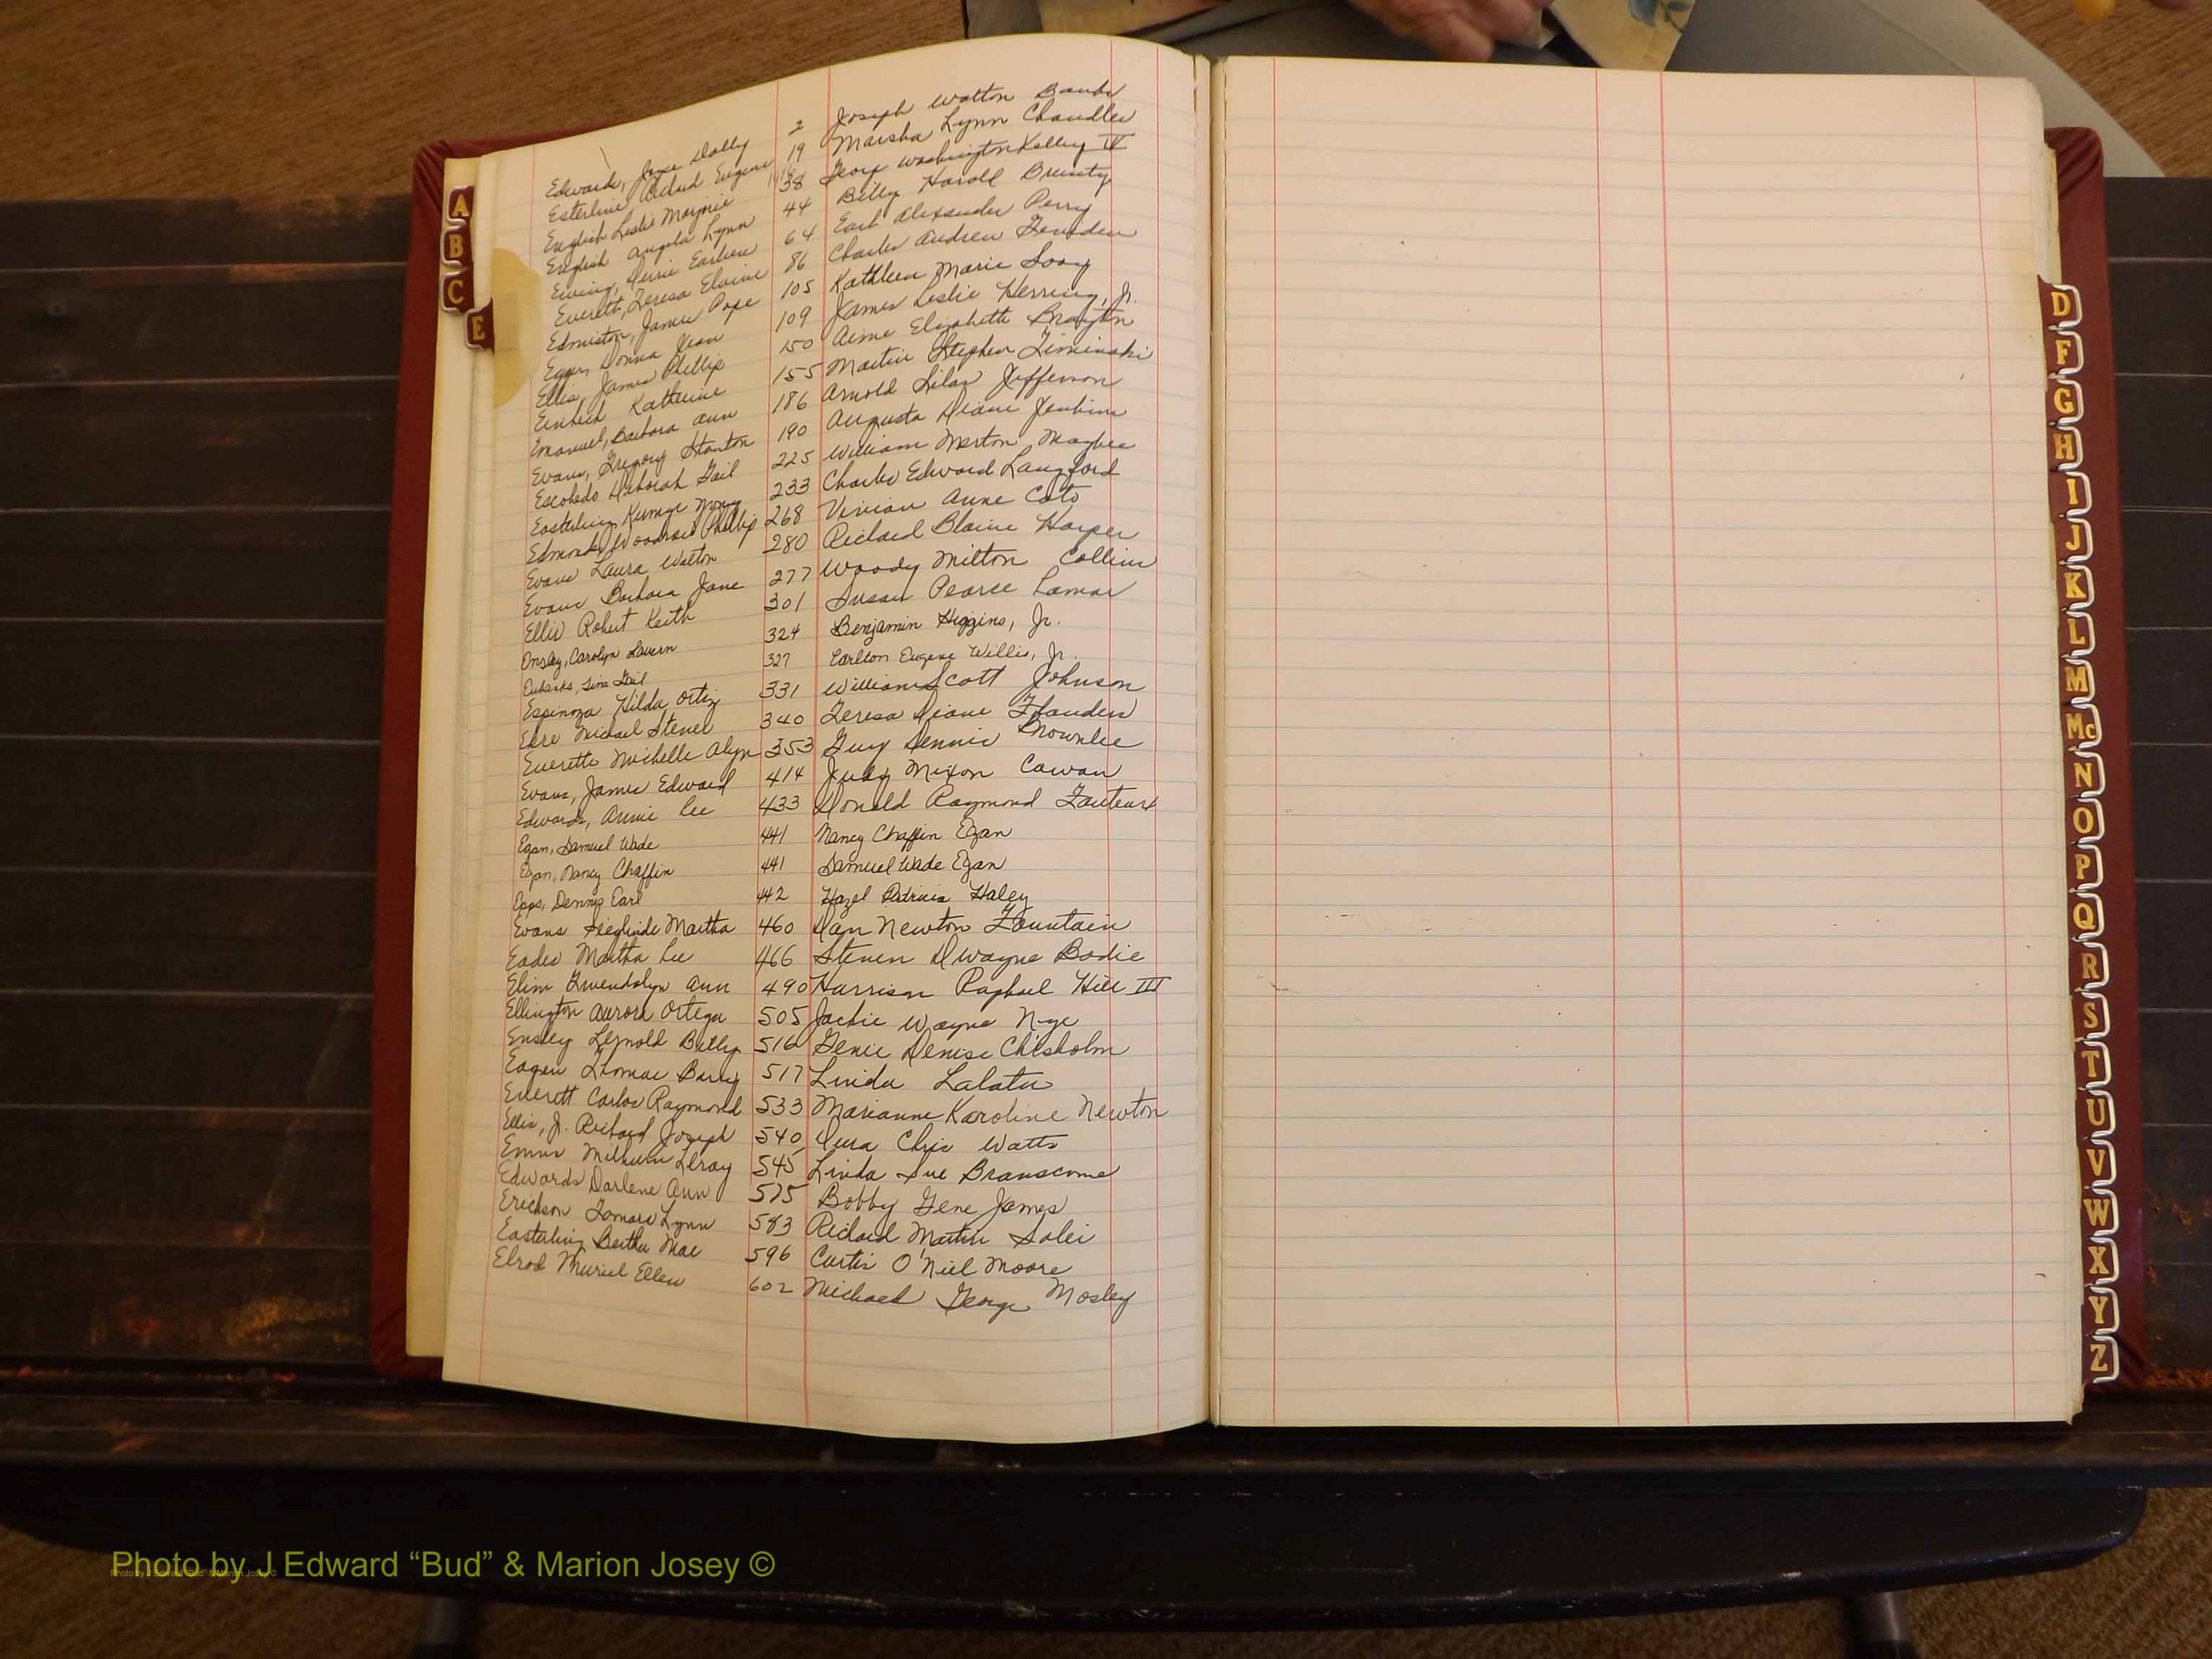 Edwards, Joye Dolly 2 Joseph Walton Banks
Esterline Eugene 19 Marsha Lynn Chandler
English Leslie Marjorie 38 George Washington Kelley IV
English Angela Lynn 44 Billy Harold Brunty
Ewing, Earlene 64 Earl Alexander Perry
Everett, Teresa Elaine 86 Charles Andrew
Edmiston, James Pope 105 Kathleen Marie
Donna Jean 109 James Leslie Herring, Jr.
Ellis, James Phillip 150 Aime Elizabeth Brayton
Katherine 155 Martin Stephen Ziminski
Emanuel, Barbara Ann 186 Arnold Silas Jefferson
Evans, Gregory Stanton 190 Augusta Diane Jenkins
Escobedo Deborah Gail 225 William Merton Maybee
Easterling 233 Charles Edward Langford
Edmonds, Woodrow Phillip 268 Vivian Anne Cato
Evans Laura Walton 280 Richard Blaine Harper
Evans Barbara Jane 277 Woody Milton Collins
Ellis Robert Keith 301 Susan Pearce Lamar
Carolyn Lavern 324 Benjamin Higgins, Jr.
Eubanks, Tina Gail 327 Carlton Eugene Willis, Jr.
Espinoza Hilda Ortiz 331 William Scott Johnson
Michael Steven 340 Teresa Diane Flanders
Everette Michelle Alyn 353 Guy Dennis Brownlee
Evans, James Edward 414 Judy Mixon Cowan
Edwards, Annie Lee 433 Donald Raymond Fauteux
Egan, Samuel Wade 441 Nancy Chaffin Egan
Egan, Nancy Chaffin 441 Samuel Wade Egan
Epps, Dennis Earl 442 Hazel Patricia Haley
Evans Sieglinde Martha 460 Dan Newton Fountain
Eades Martha Lee 466 Steven Dwayne Bodie
Elim Gwendolyn Ann 490 Harrison Raphael Hill III
Ellington Aurora Ortega 505 Jackie Wayne Nye
Ensley Lynold Billy 516 Genie Denise Chisholm
Eagen Thomas Barry 517 Linda
Everett Carlos Raymond 533 Marianne Karoline Newton
Ellis, Jr. Richard Joseph 540 Chris Watts
Milburn Leroy 545 Linda Sue Branscome
Edwards Darlene Ann 575 Bobby Gene James
Erickson Tamara Lynn 583 Richard Martin
Easterling Bertha Mae 596 Curtis O'Niel Moore
Elrod Muriel Ellen 602 Michael George Mosley
A
B
C
E
D
F
G
H
I
J
K
L
M
Mc
N
O
P
Q
R
S
T
U
V
W
X
Y
Z
Photo by J Edward “Bud” & Marion Josey ©
Photo by J Edward “Bud” & Marion Josey ©